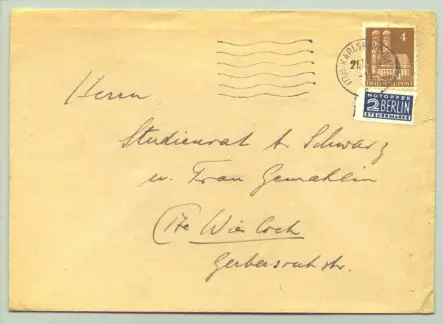 KARLSRUHE
21.
4
NOTOPFER
2 BERLIN
STEUERMARKE
Herrn
Studienrat A. Schwarz
u. Frau Gemahlin
(17a) Wiesloch
Gerbersruhstr.